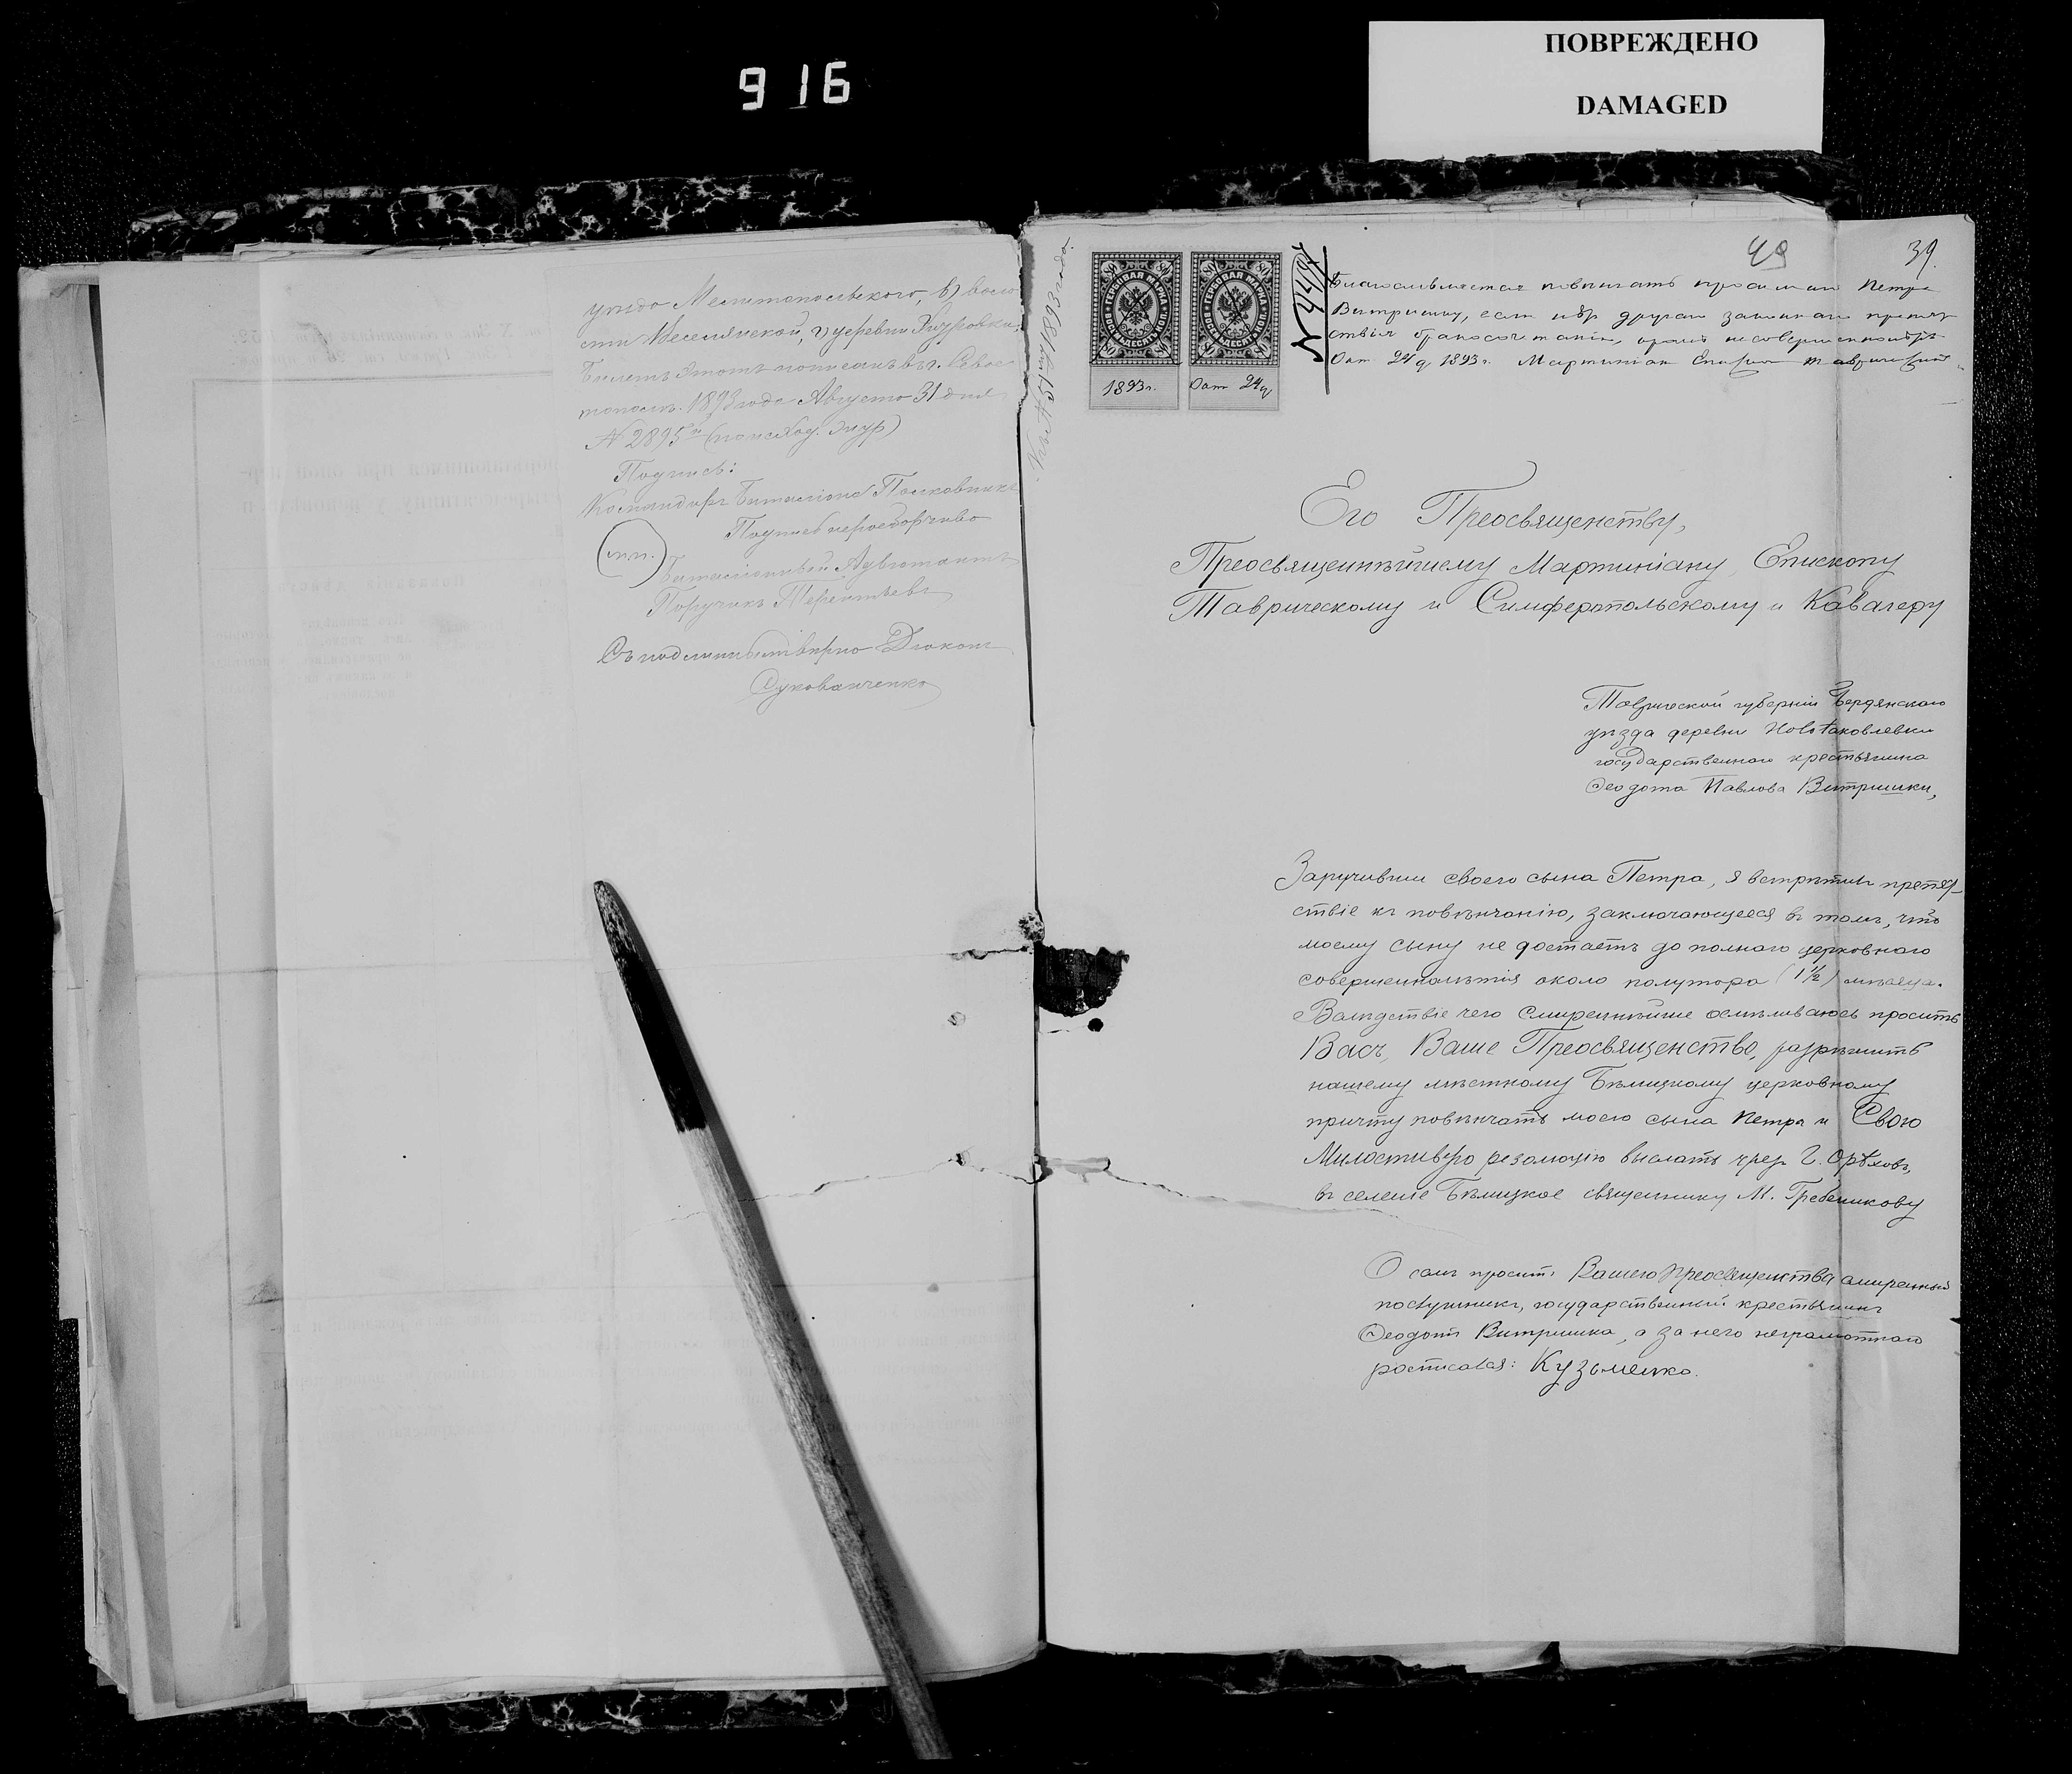 916
ПОВРЕЖДЕНО
DAMAGED
уѣзда Мелитопольского, в) воло
сти Веселянской, г) деревни
Билетъ этотъ написанъ въ г. Севас
тополѣ. 1893 года Августа 31 дня
№ 2895й (по исход. жур)
Подпись:
Командиръ Баталiона Полковникъ
Подпись неразборчиво
(м.п.)
Баталiонный Адъютантъ
Поручикъ Терентьевъ
Съ подлиннымъ вѣрно Дiаконъ
49
39.
1893 года.
ГЕРБОВАЯ МАРКА
ВОСЕМЬДЕСЯТЪ КОП.
80 80
80 80
1893 г.
ГЕРБОВАЯ МАРКА
ВОСЕМЬДЕСЯТЪ КОП.
80 80
80 80
Окт 24 д
Благословляется повѣнчать Петра
Витришку, если нѣтъ другихъ законныхъ препят
ствiй бракосочетанiю, кромѣ несовершеннолѣтiя
Окт 24 д 1893 г. Мартинiан Епископ Таврический
Его Преосвященству,
Преосвященнѣйшему Мартинiану, Епископу
Таврическому и Симферопольскому и Кавалеру
Таврической губернiи Бердянского
уѣзда деревни НовоЯковлевки
государственного крестьянина
Ѳеодота Павлова Витришки,
Заручивши своего сына Петра, я встрѣтилъ препят-
ствiе къ повѣнчанiю, заключающееся въ томъ, что
моему сыну не достаетъ до полнаго церковного
совершеннолѣтiя около полутора (1½) мѣсяца.
Вслѣдствiе чего смиреннѣйше осмѣливаюсь просить
Васъ, Ваше Преосвященство, разрѣшить
нашему мѣстному Бѣлицкому церковному
причту повѣнчать моего сына Петра и Свою
Милостивую резолюцiю выслать чрез Г. Орѣховъ,
въ селенiе Бѣлицкое священнику М. Гребеникову
О семъ проситъ Вашего Преосвященства смиренный
послушникъ, государственный крестьянинъ
Ѳеодотъ Витришка, а за него неграмотного
росписался: Кузьменко.